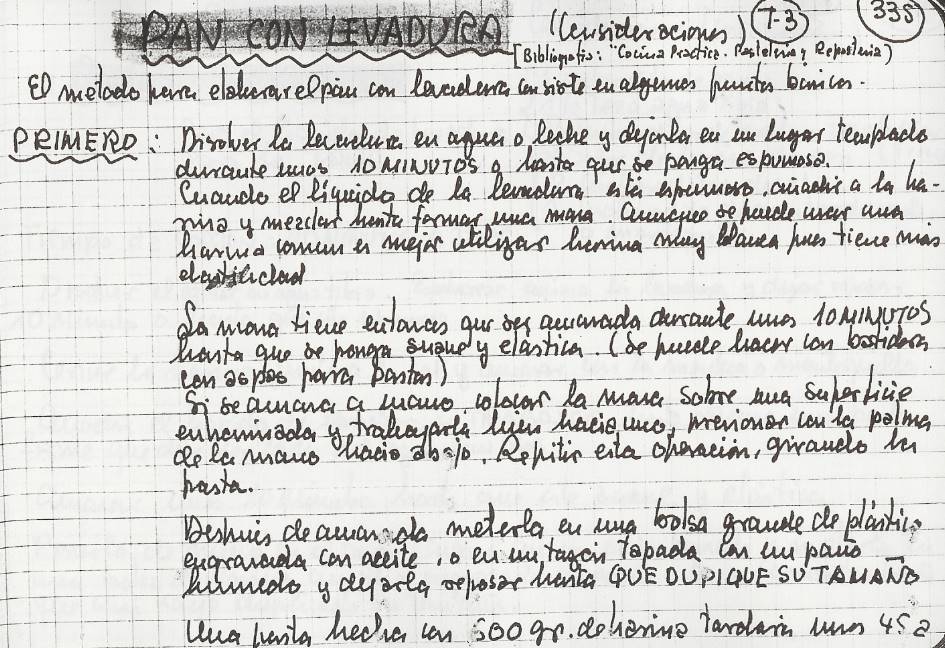 PAN CON LEVADURA (Consideraciones) T-3 335
[Bibliografia: "Cocina Practica. Pasteleria y Reposteria)
El metodo para elaborar el pan con levadura consiste en algunos puntos basicos.
PRIMERO: Disolver la levadura en agua o leche y dejarla en un lugar templado
durante unos 10 MINUTOS o hasta que se ponga espumosa.
Cuando el líquido de la levadura está espumoso, añadir a la ha-
rina y mezclar hasta formar una masa. Aunque se puede usar una
harina comun es mejor utilizar harina muy blanca pues tiene más
elasticidad
La masa tiene entonces que ser amasada durante unos 10 MINUTOS
hasta que se ponga suave y elástica. (Se puede hacer con batidora
con aspas para pastas)
Si se amasa a mano, colocar la masa sobre una superficie
enharinada y trabajarla bien hacia uno, presionar con la palma
de la mano hacia abajo. Repitir esta operación, girando la
pasta.
Después de amasada meterla en una bolsa grande de plástico
engrasada con aceite, o en un tazón tapada con un paño
humedo y dejarla reposar hasta QUE DUPIQUE SU TAMAÑO
Una pasta hecha con 500 gr. de harina tardara unos 45 a